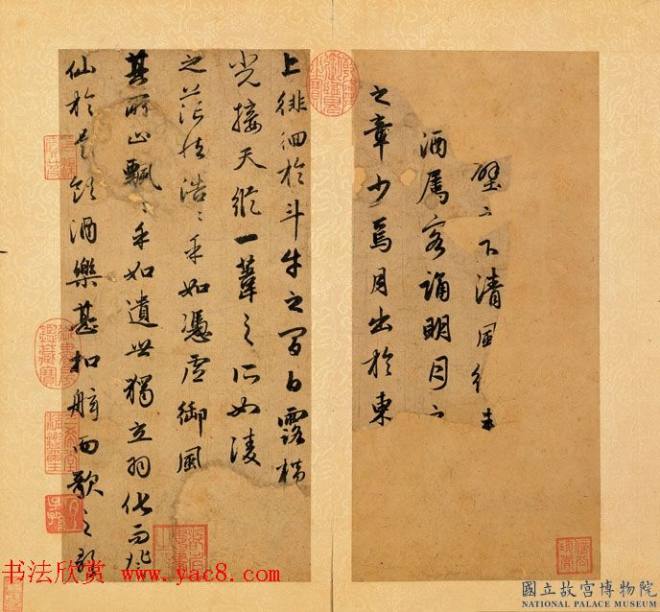 壁〻下清風徐来
酒屬客誦明月之
之章少焉月出於東
上徘徊於斗牛之間白露橫
光接天縱一葦之所如凌
之茫然浩〻乎如憑虛御風
其所止飄〻乎如遺世獨立羽化而登
仙於是飲酒樂甚扣舷而歌之歌
书法欣赏 www.yac8.com
國立故宮博物院
NATIONAL PALACE MUSEUM